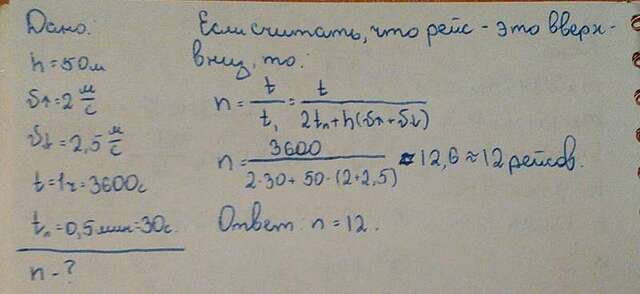 Дано:
h = 50 м
v↑ = 2 м/с
v↓ = 2,5 м/с
t = 1ч = 3600с
tₙ = 0,5 мин = 30с.
n - ?
Если считать, что рейс - это вверх-
вниз, то:
n = t/t₁ = t/(2tₙ + h(v↑ + v↓))
n = 3600/(2·30 + 50·(2+2,5)) ≈ 12,6 ≈ 12 рейсов.
Ответ: n = 12.